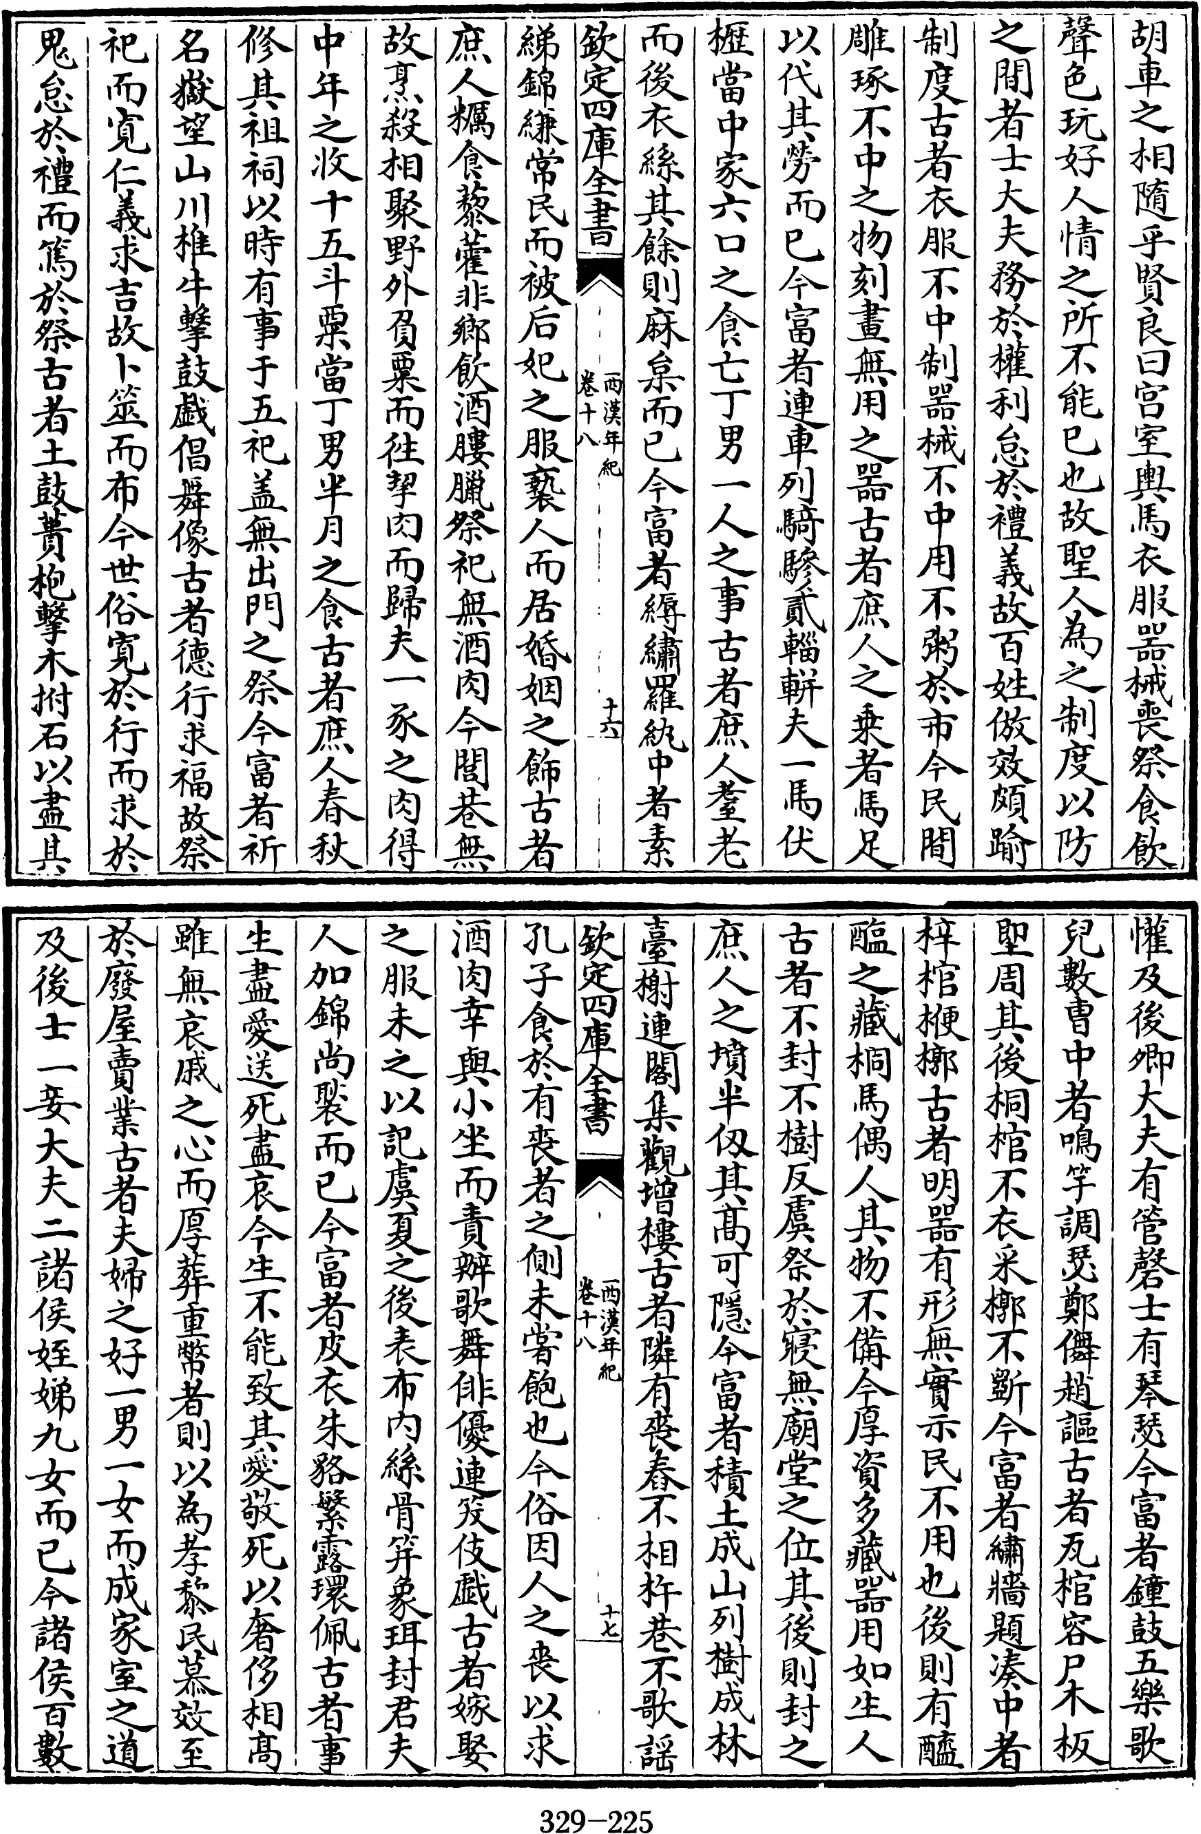 胡車之相隨乎賢良曰宫室輿馬衣服器械喪祭食飲
聲色玩好人情之所不能已也故聖人為之制度以防
之間者士大夫務於權利怠於禮義故百姓倣效頗踰
制度古者衣服不中制器械不中用不粥於市今民間
雕琢不中之物刻畫無用之器古者庶人之乗者馬足
以代其勞而已今富者連車列騎驂貳輜軿夫一馬伏
櫪當中家六口之食亡丁男一人之事古者庶人耋老
而後衣絲其餘則麻枲而已今富者縟繡羅紈中者素
欽定四庫全書
西漢年紀
卷十八
十六
綈錦縑常民而被后妃之服褻人而居婚姻之飾古者
庶人糲食藜藿非鄉飲酒膢臘祭祀無酒肉今閭巷無
故烹殺相聚野外負粟而往挈肉而歸夫一豕之肉得
中年之收十五斗粟當丁男半月之食古者庶人春秋
修其祖祠以時有事于五祀盖無出門之祭今富者祈
名嶽望山川椎牛擊鼓戲倡舞像古者德行求福故祭
祀而寛仁義求吉故卜筮而布今世俗寛於行而求於
鬼怠於禮而篤於祭古者土鼓蕢枹擊木拊石以盡其
懽及後卿大夫有管磬士有琴瑟今富者鐘鼓五樂歌
兒數曹中者鳴竽調瑟鄭儛趙謳古者瓦棺容尸木板
堲周其後桐棺不衣采槨不斲今富者繡牆題凑中者
梓棺楩槨古者明器有形無實示民不用也後則有醯
醢之藏桐馬偶人其物不備今厚資多藏器用如生人
古者不封不樹反虞祭於寢無廟堂之位其後則封之
庶人之墳半仭其髙可隱今富者積土成山列樹成林
臺榭連閣集觀增樓古者隣有喪舂不相杵巷不歌謡
欽定四庫全書
西漢年紀
卷十八
十七
孔子食於有喪者之側未嘗飽也今俗因人之喪以求
酒肉幸與小坐而責辦歌舞俳優連笑伎戲古者嫁娶
之服未之以記虞夏之後表布内絲骨笄象珥封君夫
人加錦尚褧而已今富者皮衣朱貉繁露環佩古者事
生盡愛送死盡哀今生不能致其愛敬死以奢侈相髙
雖無哀戚之心而厚葬重幣者則以為孝黎民慕效至
於廢屋賣業古者夫婦之好一男一女而成家室之道
及後士一妾大夫二諸侯姪娣九女而已今諸侯百數
329-225